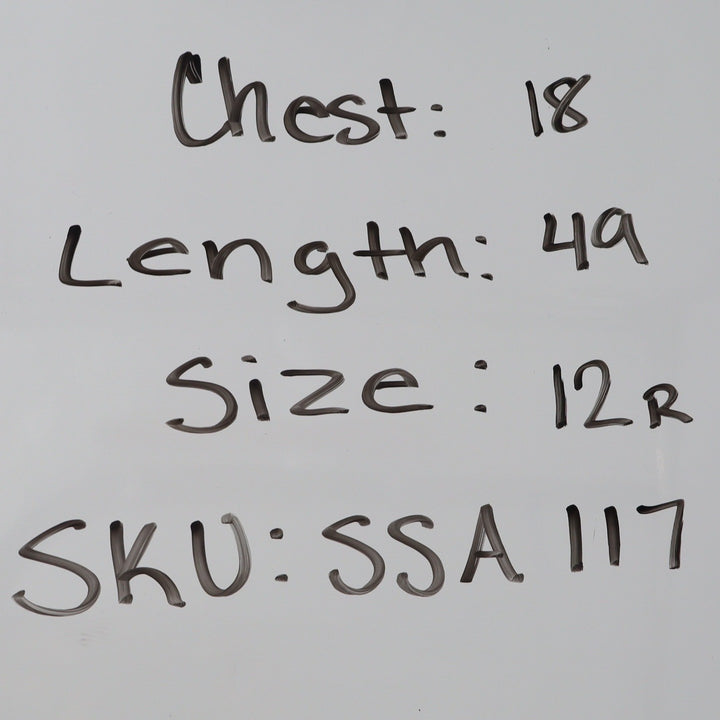 Chest: 18
Length: 49
Size: 12R
SKU: SSA 117